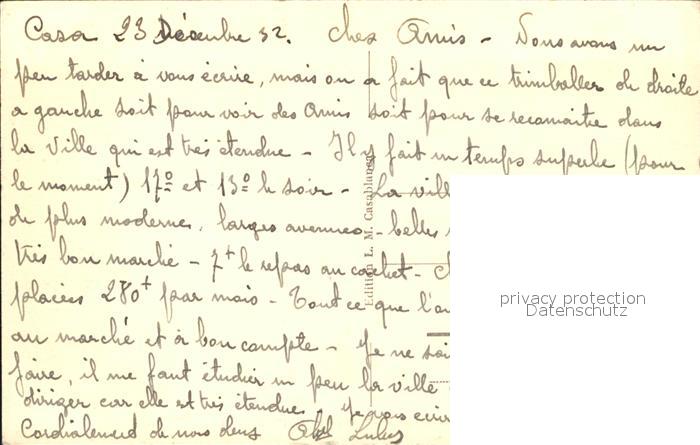 Casa 23 Décembre 32. Chers Amis - Nous avons un
peu tarder à vous écrire, mais on a fait que ce trimballer de droite
a gauche soit pour voir des Amis soit pour se reconnaitre dans
la Ville qui est très étendue - Il y fait un temps superbe (pour
le moment) 17° et 13° le soir - La vill
de plus moderne, larges avenues - belles
très bon marché - 7f le repas au cachet -
placées 280f par mois - Tout ce que l'
au marché et à bon compte - Je ne sai
faire, il me faut étudier un peu la ville
diriger car elle est très étendue. Je vous écrir
Cordialement de nous deux Abel
Edition L. M. Casablanca
privacy protection
Datenschutz